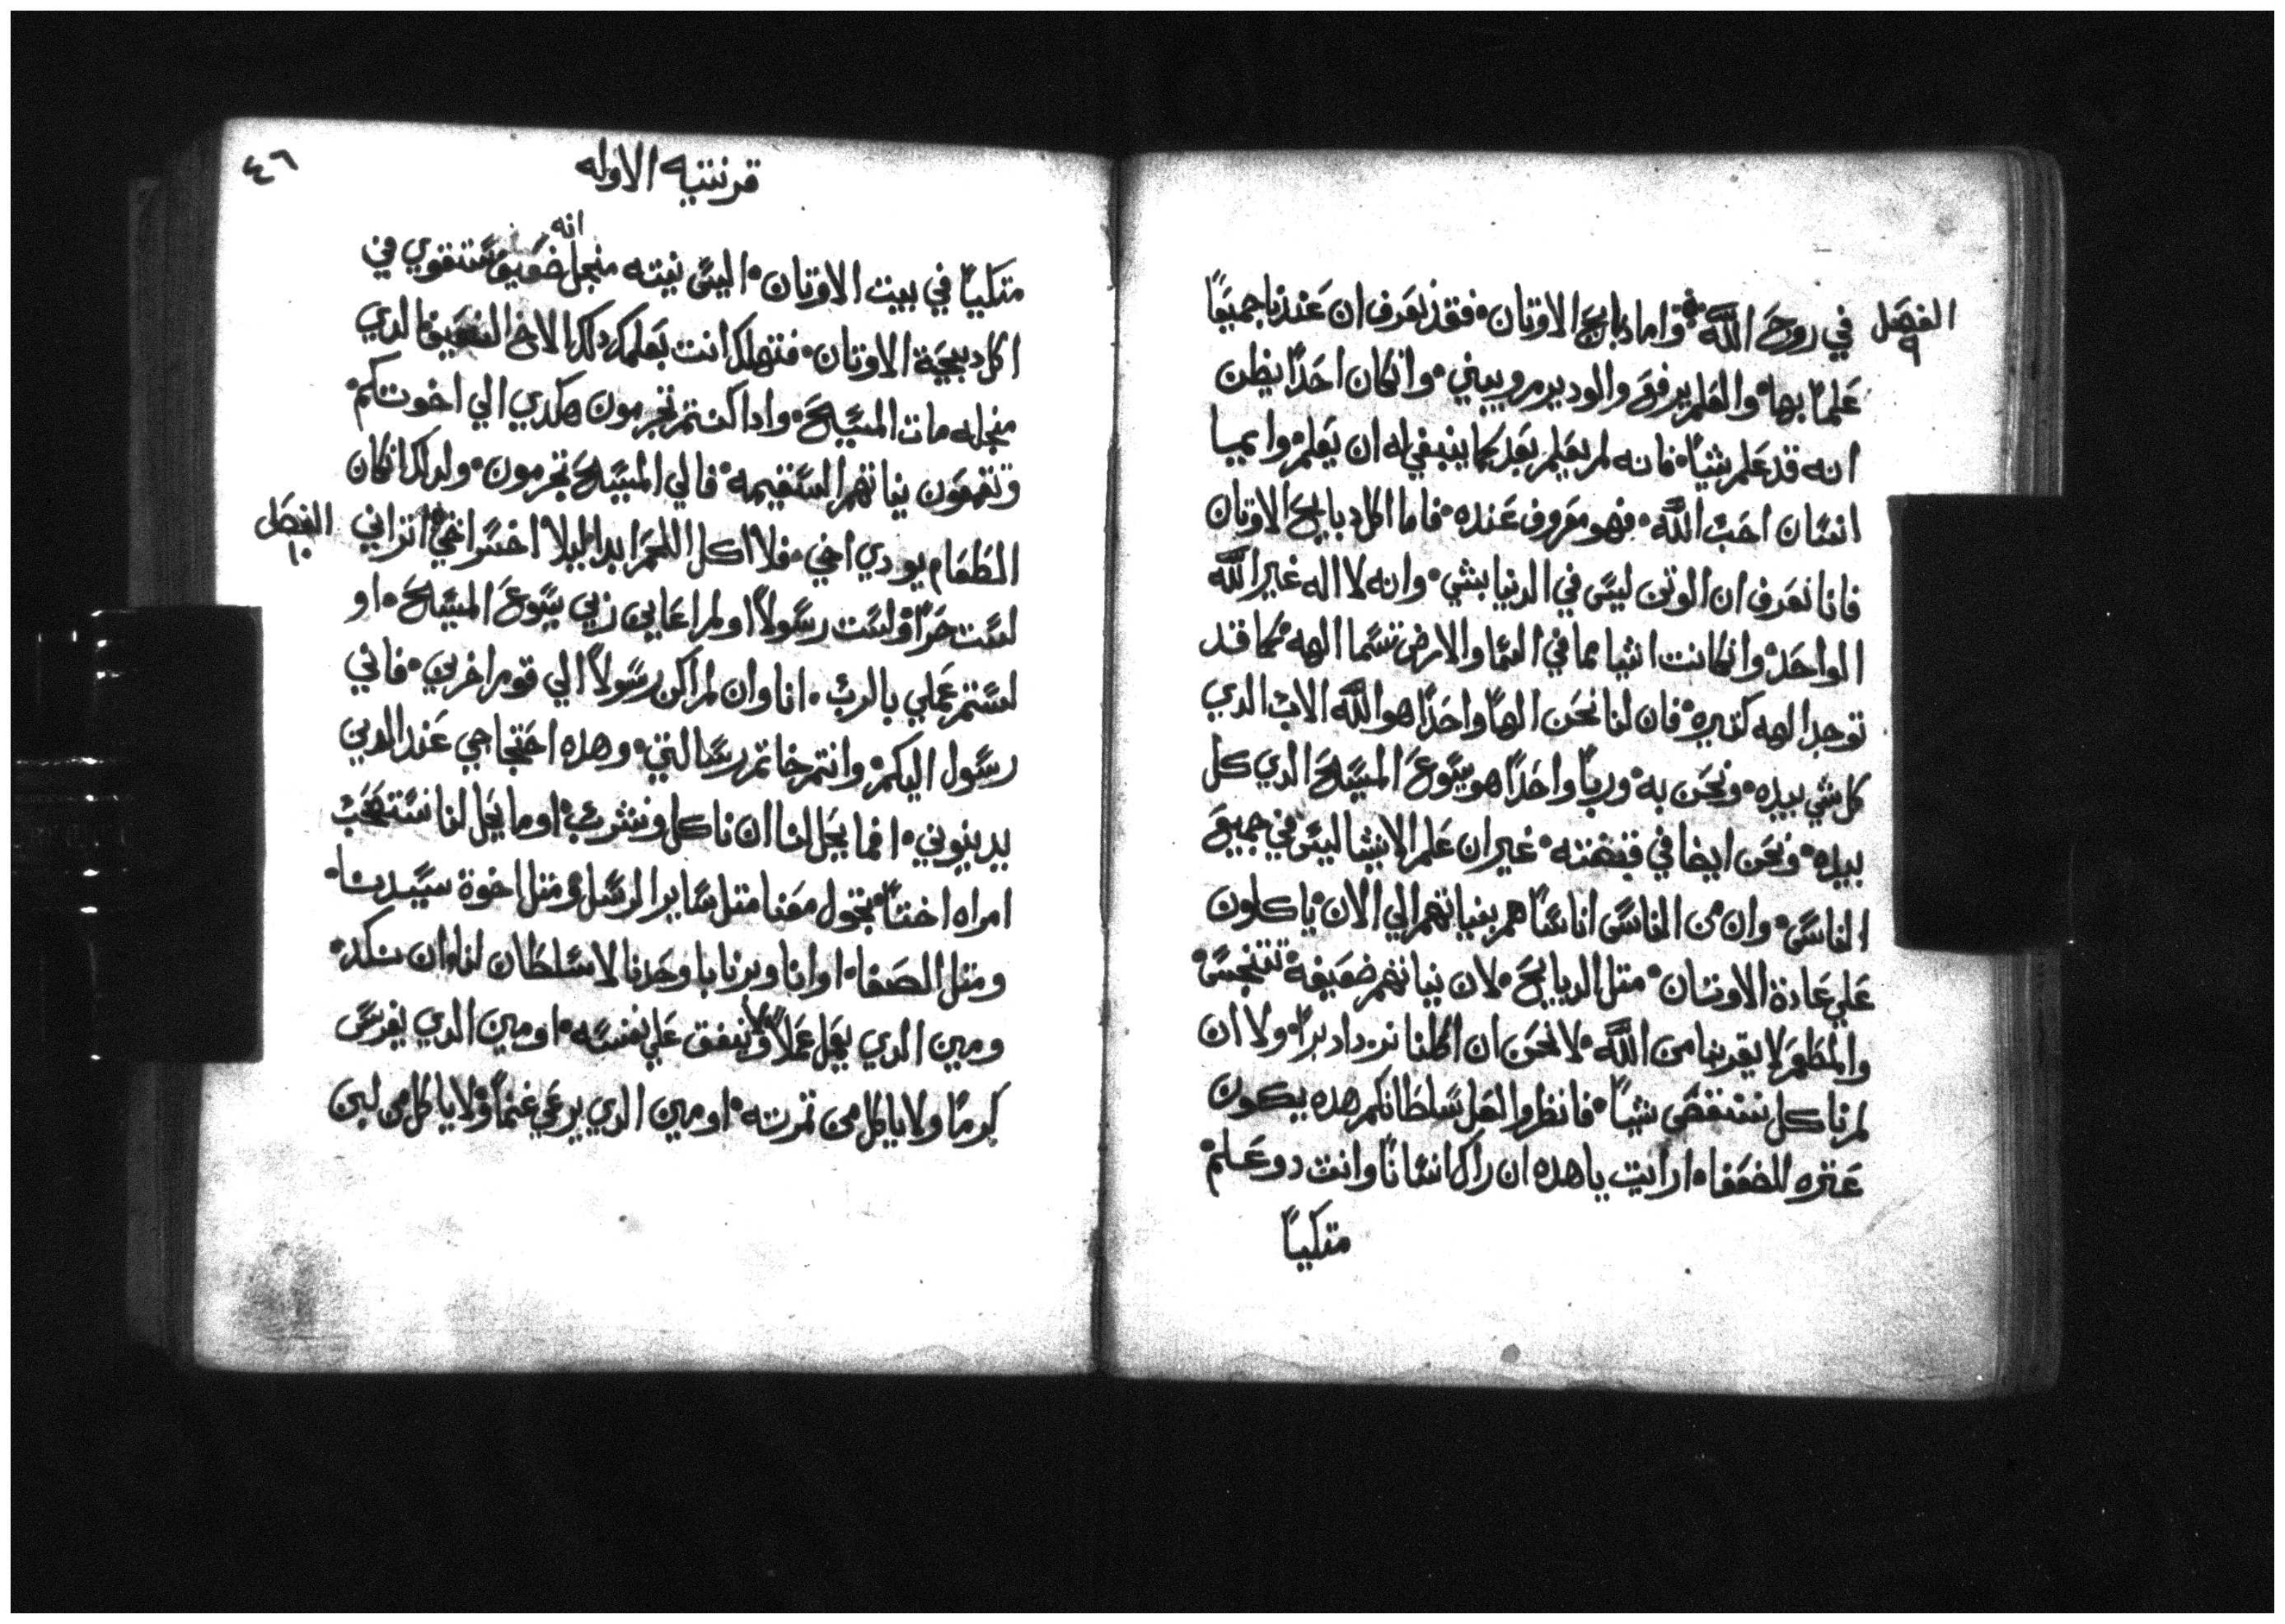 الفصل ٩
في روح الله ۞ واما دبايح الاوتان فقد نعرف ان عندنا جميعًا
علمًا بها والعلم يرفع والود يرم ويبني وانكان احدًا يظن
انه قد علم شيًا فانه لم يعلم بعد كما ينبغي له ان يعلم وايما
انسان احب الله فهو معروف عنده فاما اكل دبايح الاوتان
فانا نعرف ان الوتن ليس في الدنيا بشي وانه لا اله غير الله
الواحد وانكانت اشيا مما في السما والارض تسما الهه كما قد
توجد الهه كتيره فان لنا نحن الهًا واحدًا هو الله الاب الدي
كل شي بيده ونحن به وربًا واحدًا هو يسوع المسيح الدي كل
بيده ونحن ايضا في قبضته غير ان علم الاشيا ليس في جميع
الناس وان من الناس اناسًا هم بنياتهم الي الان ياكلون
علي عادة الاوتان متل الدبايح لان نياتهم ضعيفة تتنجس
والمطعم لا يقربنا من الله لا نحن ان اكلنا نزداد برًا ولا ان
لم ناكل ننتقص شيًا فانظروا لعل سلطانكم هده يكون
عتره للضعفا ارايت ياهده ان راك انسانًا وانت دو علم
متكيًا
٤٦
قرنتيه الاوله
متكيًا في بيت الاوتان اليس نيته منجل انه ضعيف تتقوي في
اكل دبيحة الاوتان فتهلك انت بعلمك دلك الاخ الضعيف الدي
منجله مات المسيح وادا كنتم تجرمون هكدي الي اخوتكم
وتقمعون نياتهم السقيمه فالي المسيح تجرمون ولدلك انكان
الطعام يودي اخي فلا اكل اللحم ابدا ليلا اخسر اخي ۞ اتراني
الفصل ١٠
لست حرًا ولست رسولاً او لم اعاين ربي يسوع المسيح او
لستم عملي بالرب انا وان لم اكن رسولاً الي قوم اخرين فاني
رسول اليكم وانتم خاتم رسالتي وهده احتجاجي عند الدين
يدينوني افما يحل لنا ان ناكل ونشرب او ما يحل لنا نستصحب
امراه اختًا تجول معنا متل ساير الرسل ومتل اخوة سيدنا
ومتل الصفا او انا وبرنابا وحدنا لا سلطان لنا ان نكد
ومين الدي يعمل عملاً ولا ينفق علي نفسه او مين الدي يغرس
كرمًا ولا ياكل من تمرته او مين الدي يرعي غنمًا ولا ياكل من لبن